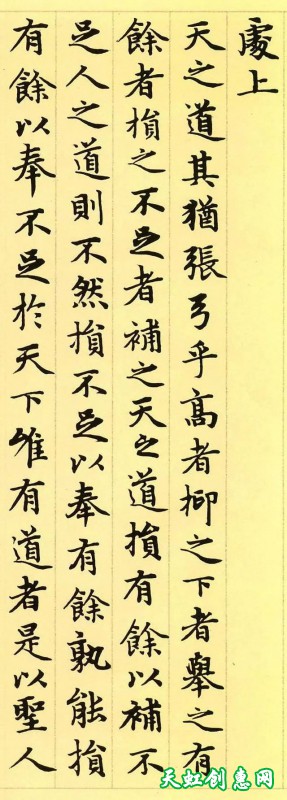 處上
天之道其猶張弓乎高者抑之下者舉之有
餘者損之不足者補之天之道損有餘以補不
足人之道則不然損不足以奉有餘孰能損
有餘以奉不足於天下唯有道者是以聖人
天虹创惠网